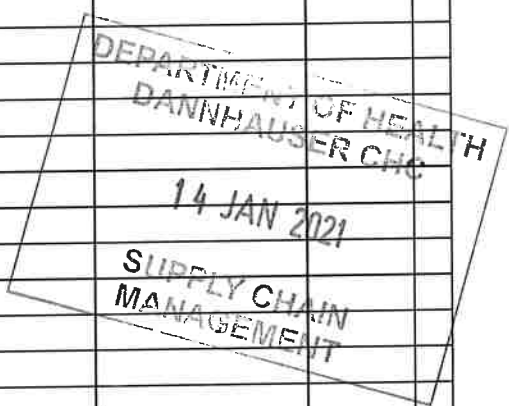 DEPARTMENT OF HEALTH
DANNHAUSER CHC
14 JAN 2021
SUPPLY CHAIN
MANAGEMENT